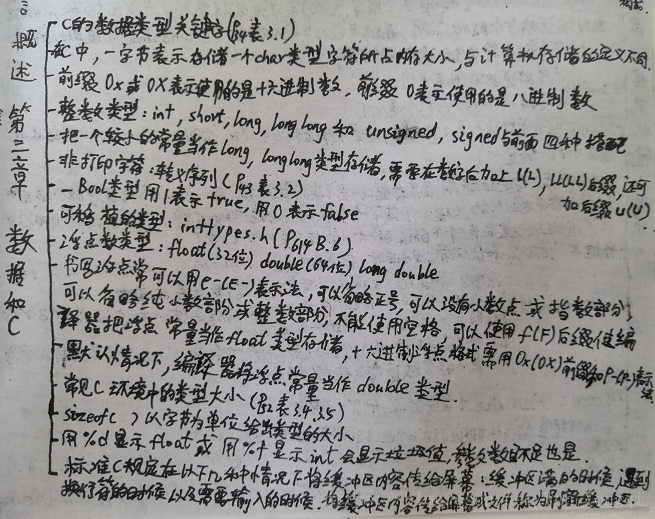 概述 第三章 数据和C
C的数据类型关键字(P34表3.1)
在C中，一字节表示存储一个char类型字符所占内存大小，与计算机存储的定义不同.
前缀0x或0X表示使用的是十六进制数，前缀0表示使用的是八进制数
整数类型：int, short, long, long long 和 unsigned, signed与前面四种搭配
把一个较小的常量当作long, long long类型存储，需要在数字后加上l(L), ll(LL)后缀，还可
加后缀u(U)
非打印字符：转义序列(P43表3.2)
_Bool类型用1表示true，用0表示false
可移植的类型：inttypes.h(P614 B.6)
浮点数类型：float(32位) double(64位) long double
书写浮点常可以用e-(E-)表示法，可以省略正号，可以没有小数点或指数部分，
可以省略纯小数部分或整数部分，不能使用空格 可以使用f(F)后缀使编
译器把浮点常量当作float类型存储，十六进制浮点格式需用0x(0X)前缀和P-(P-)表示
法
默认情况下，编译器将浮点常量当作double类型.
常见C环境中的类型大小(P52表3.4,3.5)
sizeof( )以字节为单位给出类型的大小
用%d显示float或用%f显示int会显示垃圾值，参数数目不足也是.
标准C规定在以下几种情况下将缓冲区内容传给屏幕：缓冲区满的时候，遇到
换行符的时候以及需要输入的时候. 将缓冲区内容传给屏幕或文件称为刷新缓冲区.